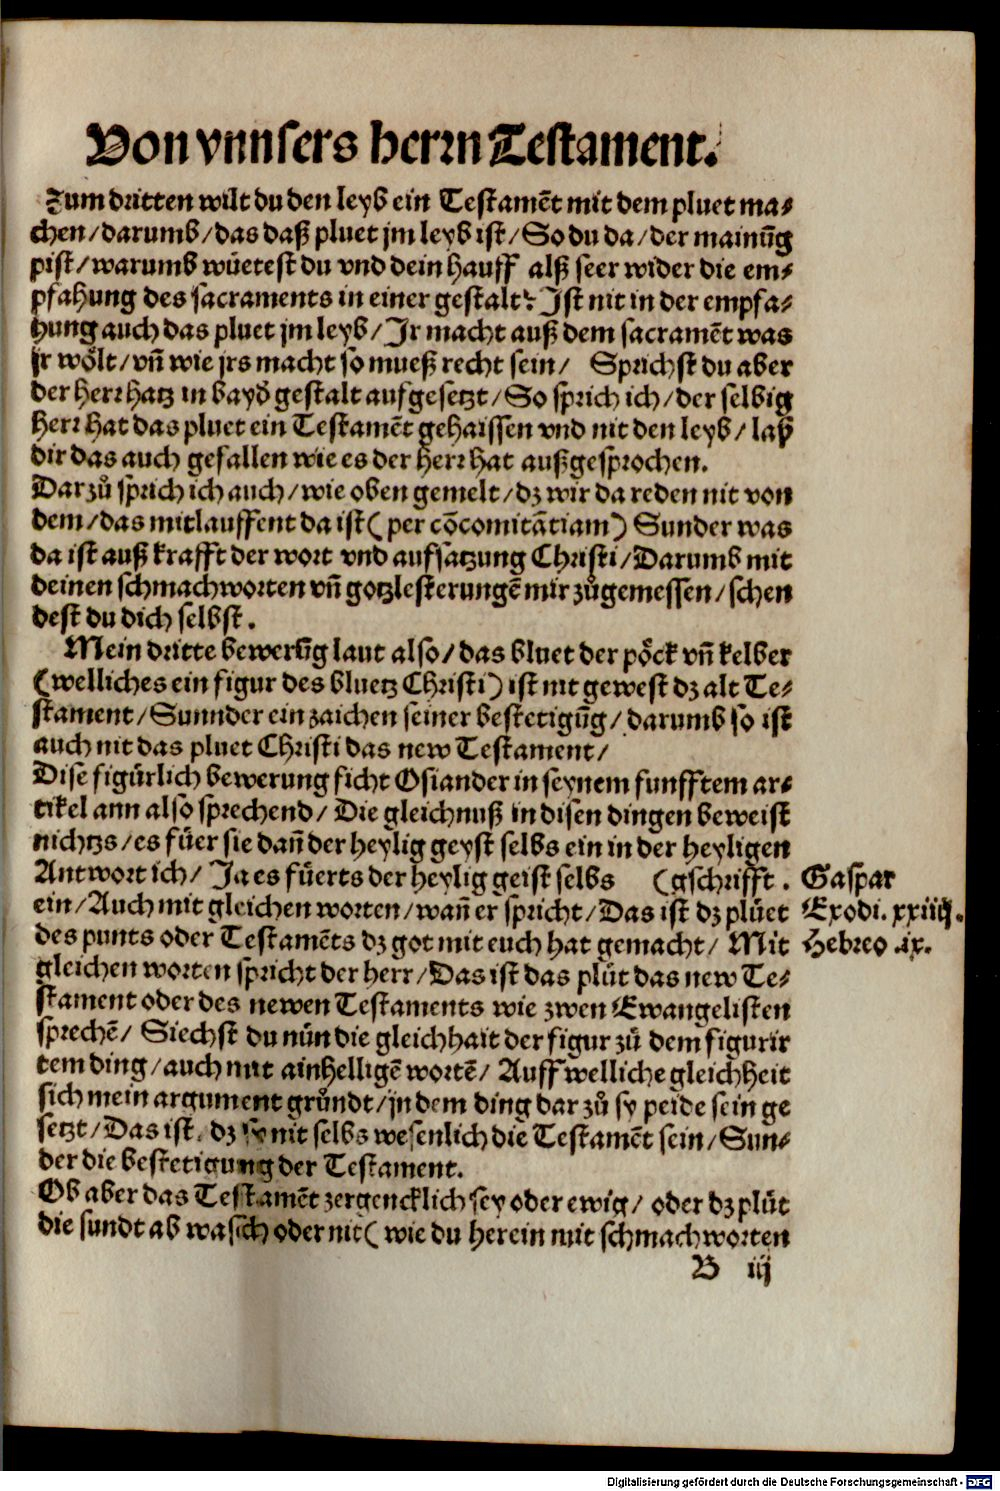 Von vnnsers herrn Testament.
Zum dritten wilt du den leyb ein Testamēt mit dem pluet ma⸗
chen/darumb/das daß pluet jm leyb ist/So du da/der mainūg
pist/warumb wüetest du vnd dein hauff alß seer wider die em⸗
pfahung des sacraments in einer gestalt? Jst nit in der empfa⸗
hung auch das pluet jm leyb/Jr macht auß dem sacramēt was
jr wölt/vñ wie jrs macht so mueß recht sein/ Sprichst du aber
der herr hatz in bayd̕ gestalt aufgesetzt/So sprich ich/der selbig
herr hat das pluet ein Testamēt gehaissen vnd nit den leyb/laß
dir das auch gefallen wie es der herr hat außgesprochen.
Darzů sprich ich auch/wie oben gemelt/dz wir da reden nit von
dem/das mitlauffent da ist(per cōcomitātiam) Sunder was
da ist auß krafft der wort vnd aufsatzung Christi/Darumb mit
deinen schmachworten vñ gotzlesterungē mir zůgemessen/schen
dest du dich selbst.
Mein dritte bewerūg laut also/das bluet der pöck vñ kelber
(welliches ein figur des bluetz Christi)ist nit gewest dz alt Te⸗
stament/Sunnder ein zaichen seiner bestetigūg/darumb so ist
auch nit das pluet Christi das new Testament/
Dise figürlich bewerung ficht Osiander in seynem funfftem ar⸗
tikel ann also sprechend/Die gleichnuß in disen dingen beweist
nichtzs/es füer sie dañ der heylig geyst selbs ein in der heyligen
Antwort ich/ Ja es füerts der heylig geist selbs (gschrifft. Gaspar
ein/Auch mit gleichen worten/wañ er spricht/Das ist dz plüet Exodi. xxiiij.
des punts oder Testamēts dz got mit euch hat gemacht/ Mit Hebreo .ix.
gleichen worten spricht der herr/Das ist das plüt das new Te⸗
stament oder des newen Testaments wie zwen Ewangelisten
sprechē/ Siechst du nün die gleichhait der figur zů dem figurir
tem ding/auch mit ainhelligē wortē/ Auff welliche gleichheit
sich mein argument gründt/jn dem ding dar zů sy peide sein ge
setzt/Das ist, dz sy nit selbs wesenlich die Testamēt sein/Sun⸗
der die bestetigung der Testament.
Ob aber das Testamēt zergencklich sey oder ewig/ oder dz plüt
die sundt ab wasich oder nit(wie du herein mit schmachworten
B iij
Digitalisierung gefördert durch die Deutsche Forschungsgemeinschaft - DFG